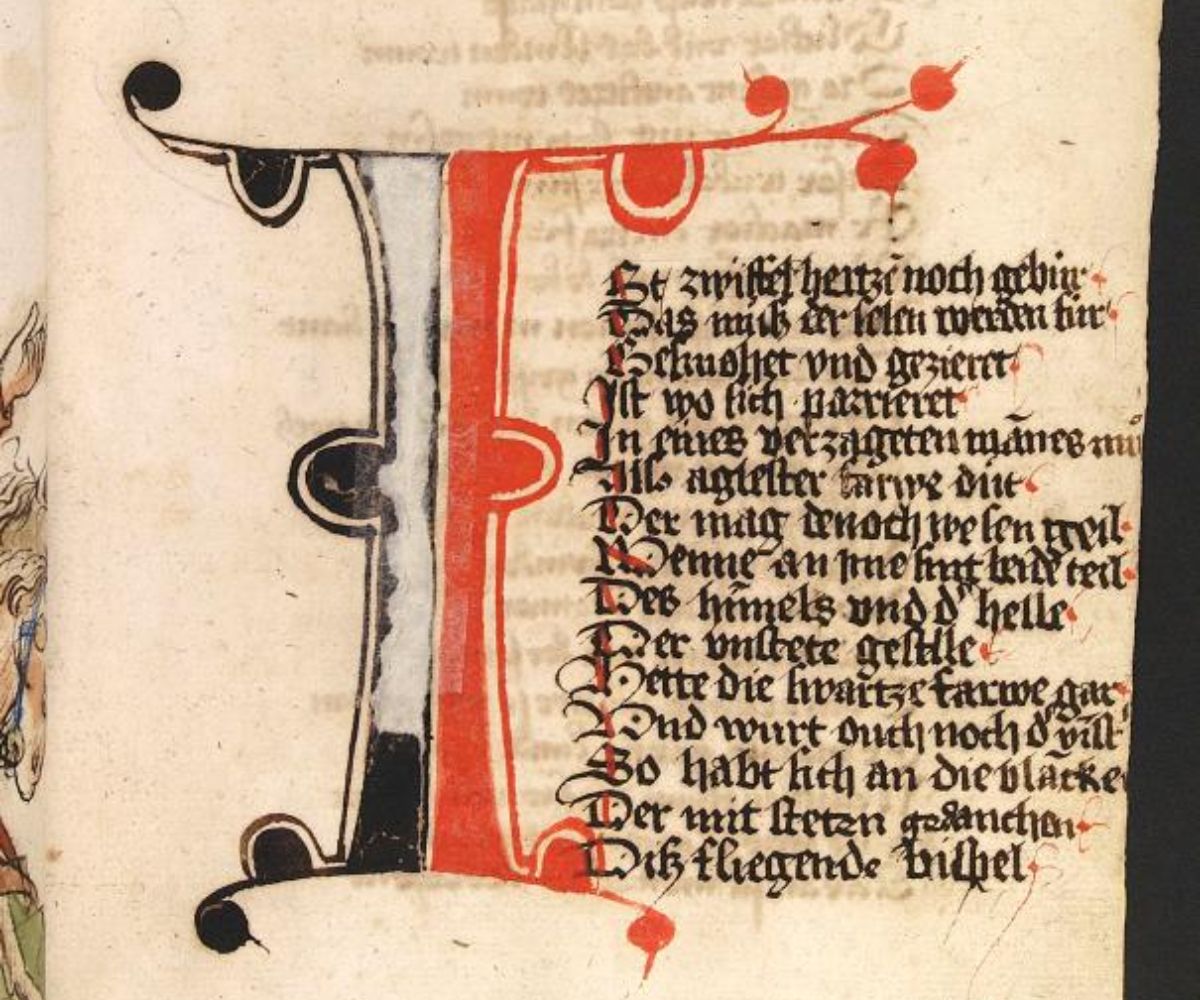 I
St zwiffel hertzē noch gebur
Das muß der selen werden sur
Gesmohet vnd gezieret
Ist wo sich parrieret
In eines verzageten mānes mů
Alß aglester farwe důt
Der mag denoch wesen geil
Wenne an jme sint beide teil
Des hīmels vnd d' helle
Der vnstete geselle
Hette die swartze farwe gar
Vnd wurt ouch noch d'
So habt sich an die blācke
Der mit stetzn gedancken
Diß fliegende bispel